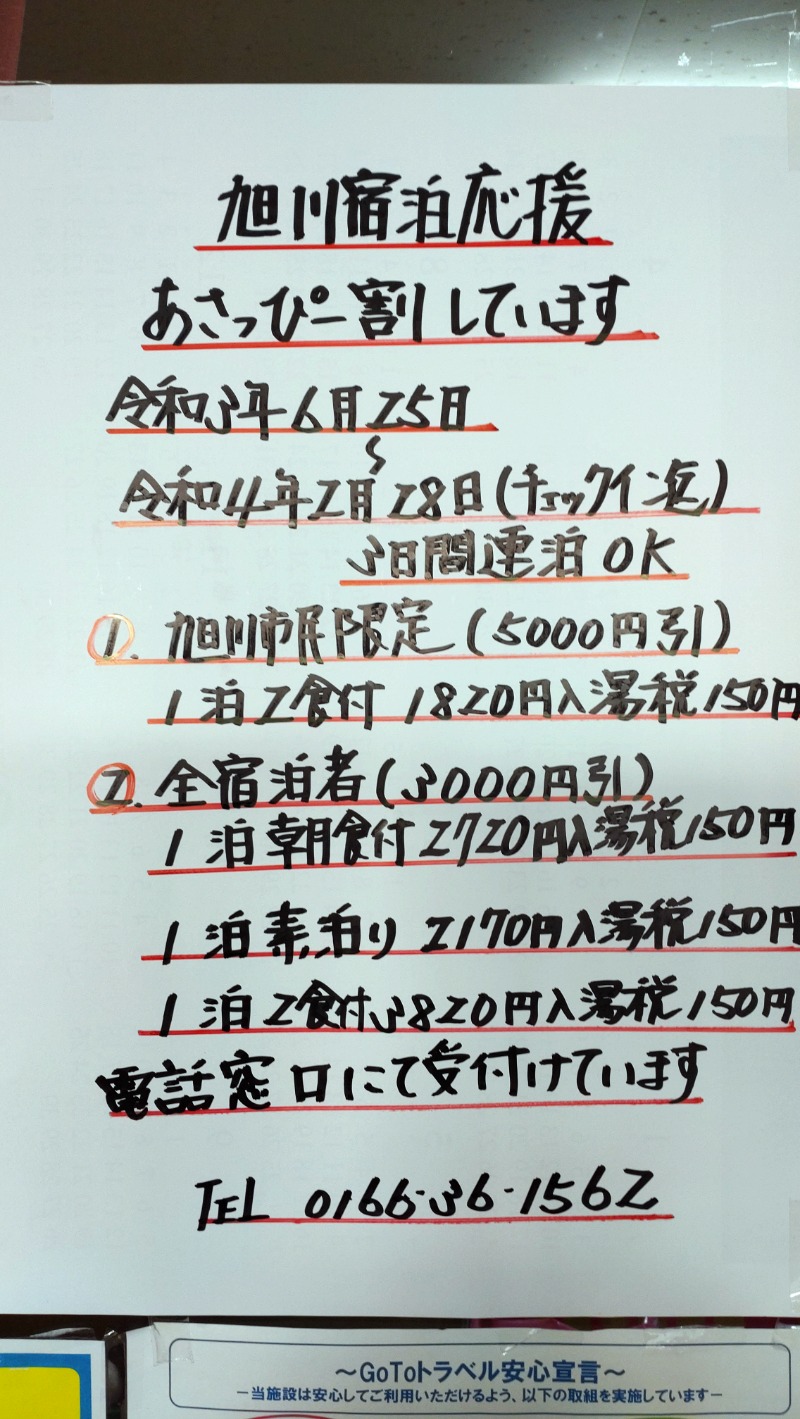 旭川宿泊応援
あさっぴー割しています
令和3年6月25日
〜
令和4年2月28日(チェックイン迄)
3日間連泊OK
①. 旭川市民限定(5000円引)
1泊2食付 1820円入湯税150円
②. 全宿泊者(3000円引)
1泊朝食付2720円入湯税150円
1泊素泊り 2170円入湯税150円
1泊2食付3820円入湯税150円
電話窓口にて受付けています
TEL 0166-36-1562
〜GoToトラベル安心宣言〜
－当施設は安心してご利用いただけるよう、以下の取組を実施しています－